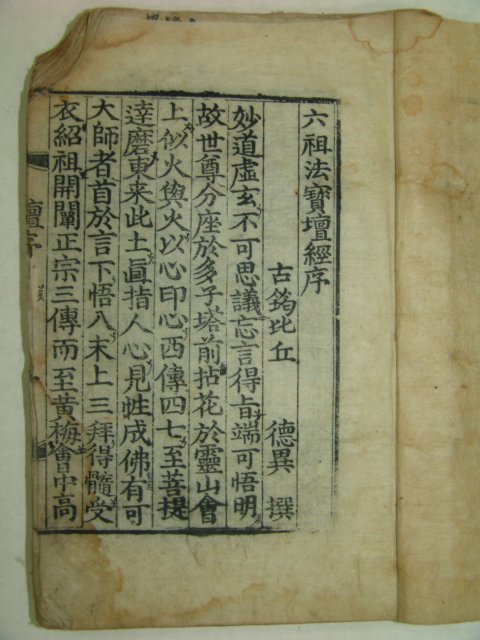 六祖法寶壇經序
古筠比丘 德異 撰
妙道虛玄不可思議忘言得旨端可悟明
故世尊分座於多子塔前拈花於靈山會
上似火與火以心印心西傳四七至菩提
達磨東来此土直指人心見性成佛有可
大師者首於言下悟入末上三拜得髓受
衣紹祖開闡正宗三傳而至黃梅會中高
壇序